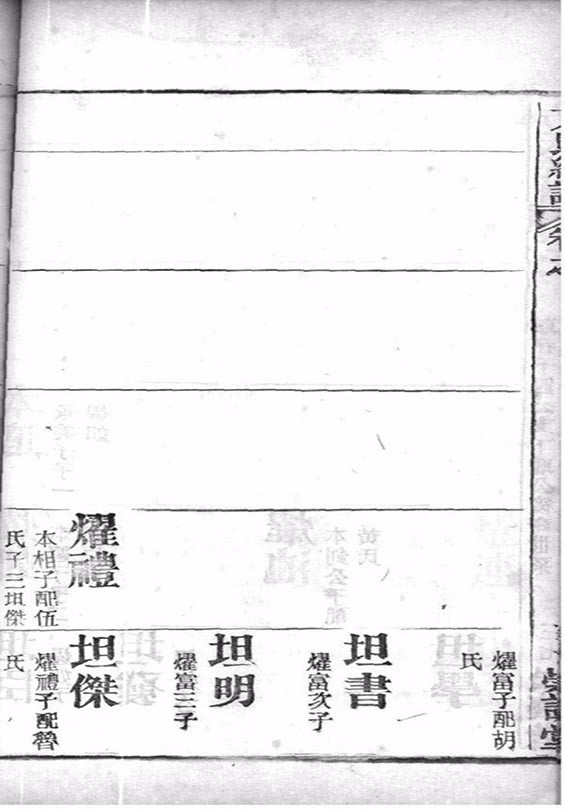 燿禮
本相子配伍
氏子三坦傑
燿富子配胡
氏
坦書
燿富次子
坦明
燿富三子
坦傑
燿禮子配魯
氏